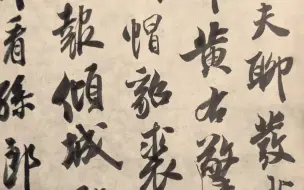 夫聊發
黄右擎
帽貂裘
報傾城
看孫郎